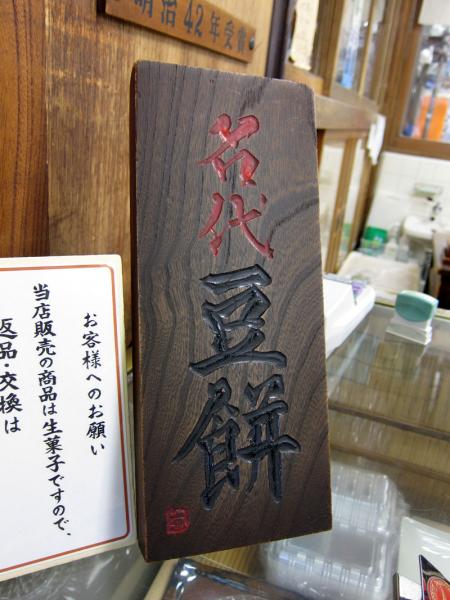 明治42年受賞
名代
豆餅
お客様へのお願い
当店販売の商品は生菓子ですので、
返品・交換は